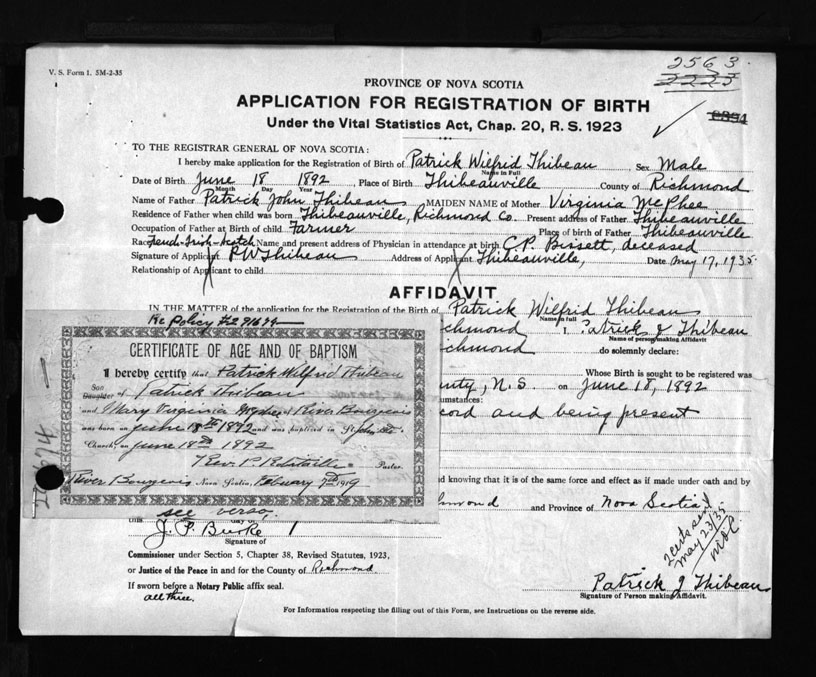 2563
2223
V. S. Form 1. 5M-2-35
PROVINCE OF NOVA SCOTIA
APPLICATION FOR REGISTRATION OF BIRTH
Under the Vital Statistics Act, Chap. 20, R. S. 1923
TO THE REGISTRAR GENERAL OF NOVA SCOTIA:
I hereby make application for the Registration of Birth of Patrick Wilfrid Thibeau Sex Male
Name in Full
Date of Birth June 18 1892, Place of Birth Thibeauville County of Richmond
Month Day Year
Name of Father Patrick John Thibeau MAIDEN NAME of Mother Virginia McPhee
Residence of Father when child was born Thibeauville, Richmond Co. Present address of Father Thibeauville
Occupation of Father at Birth of child Farmer Place of birth of Father Thibeauville
Race French-Irish-Scotch Name and present address of Physician in attendance at birth C.P. Bissett, deceased
Signature of Applicant P.W Thibeau Address of Applicant Thibeauville, Date May 17, 1935
Relationship of Applicant to child
AFFIDAVIT
IN THE MATTER of the application for the Registration of the Birth of Patrick Wilfrid Thibeau
Name in full
Re Policy
chmond I, Patrick J Thibeau
Name of person making Affidavit
chmond do solemnly declare:
Whose Birth is sought to be registered was
unty, N.S. on June 18, 1892
cumstances:
cord and being present
CERTIFICATE OF AGE AND OF BAPTISM
I hereby certify that Patrick Wilfrid Thibeau
Son
Daughter of Patrick Thibeau
and Mary Virginia McPhee of River Bourgeois
was born on June 18th 1892 and was baptized in St John
Church, on June 18th 1892
Rev. P. Pastor
River Bourgeois Nova Scotia, February 7th 1919
see verso.
nd knowing that it is of the same force and effect as if made under oath and by
hmond and Province of Nova Scotia
this day of
J. P. Burke
Signature of
Commissioner under Section 5, Chapter 38, Revised Statutes, 1923,
or Justice of the Peace in and for the County of Richmond
If sworn before a Notary Public affix seal.
all three.
2 certs sent
May 23/35
Patrick J Thibeau
Signature of Person making Affidavit.
For Information respecting the filling out of this Form, see Instructions on the reverse side.